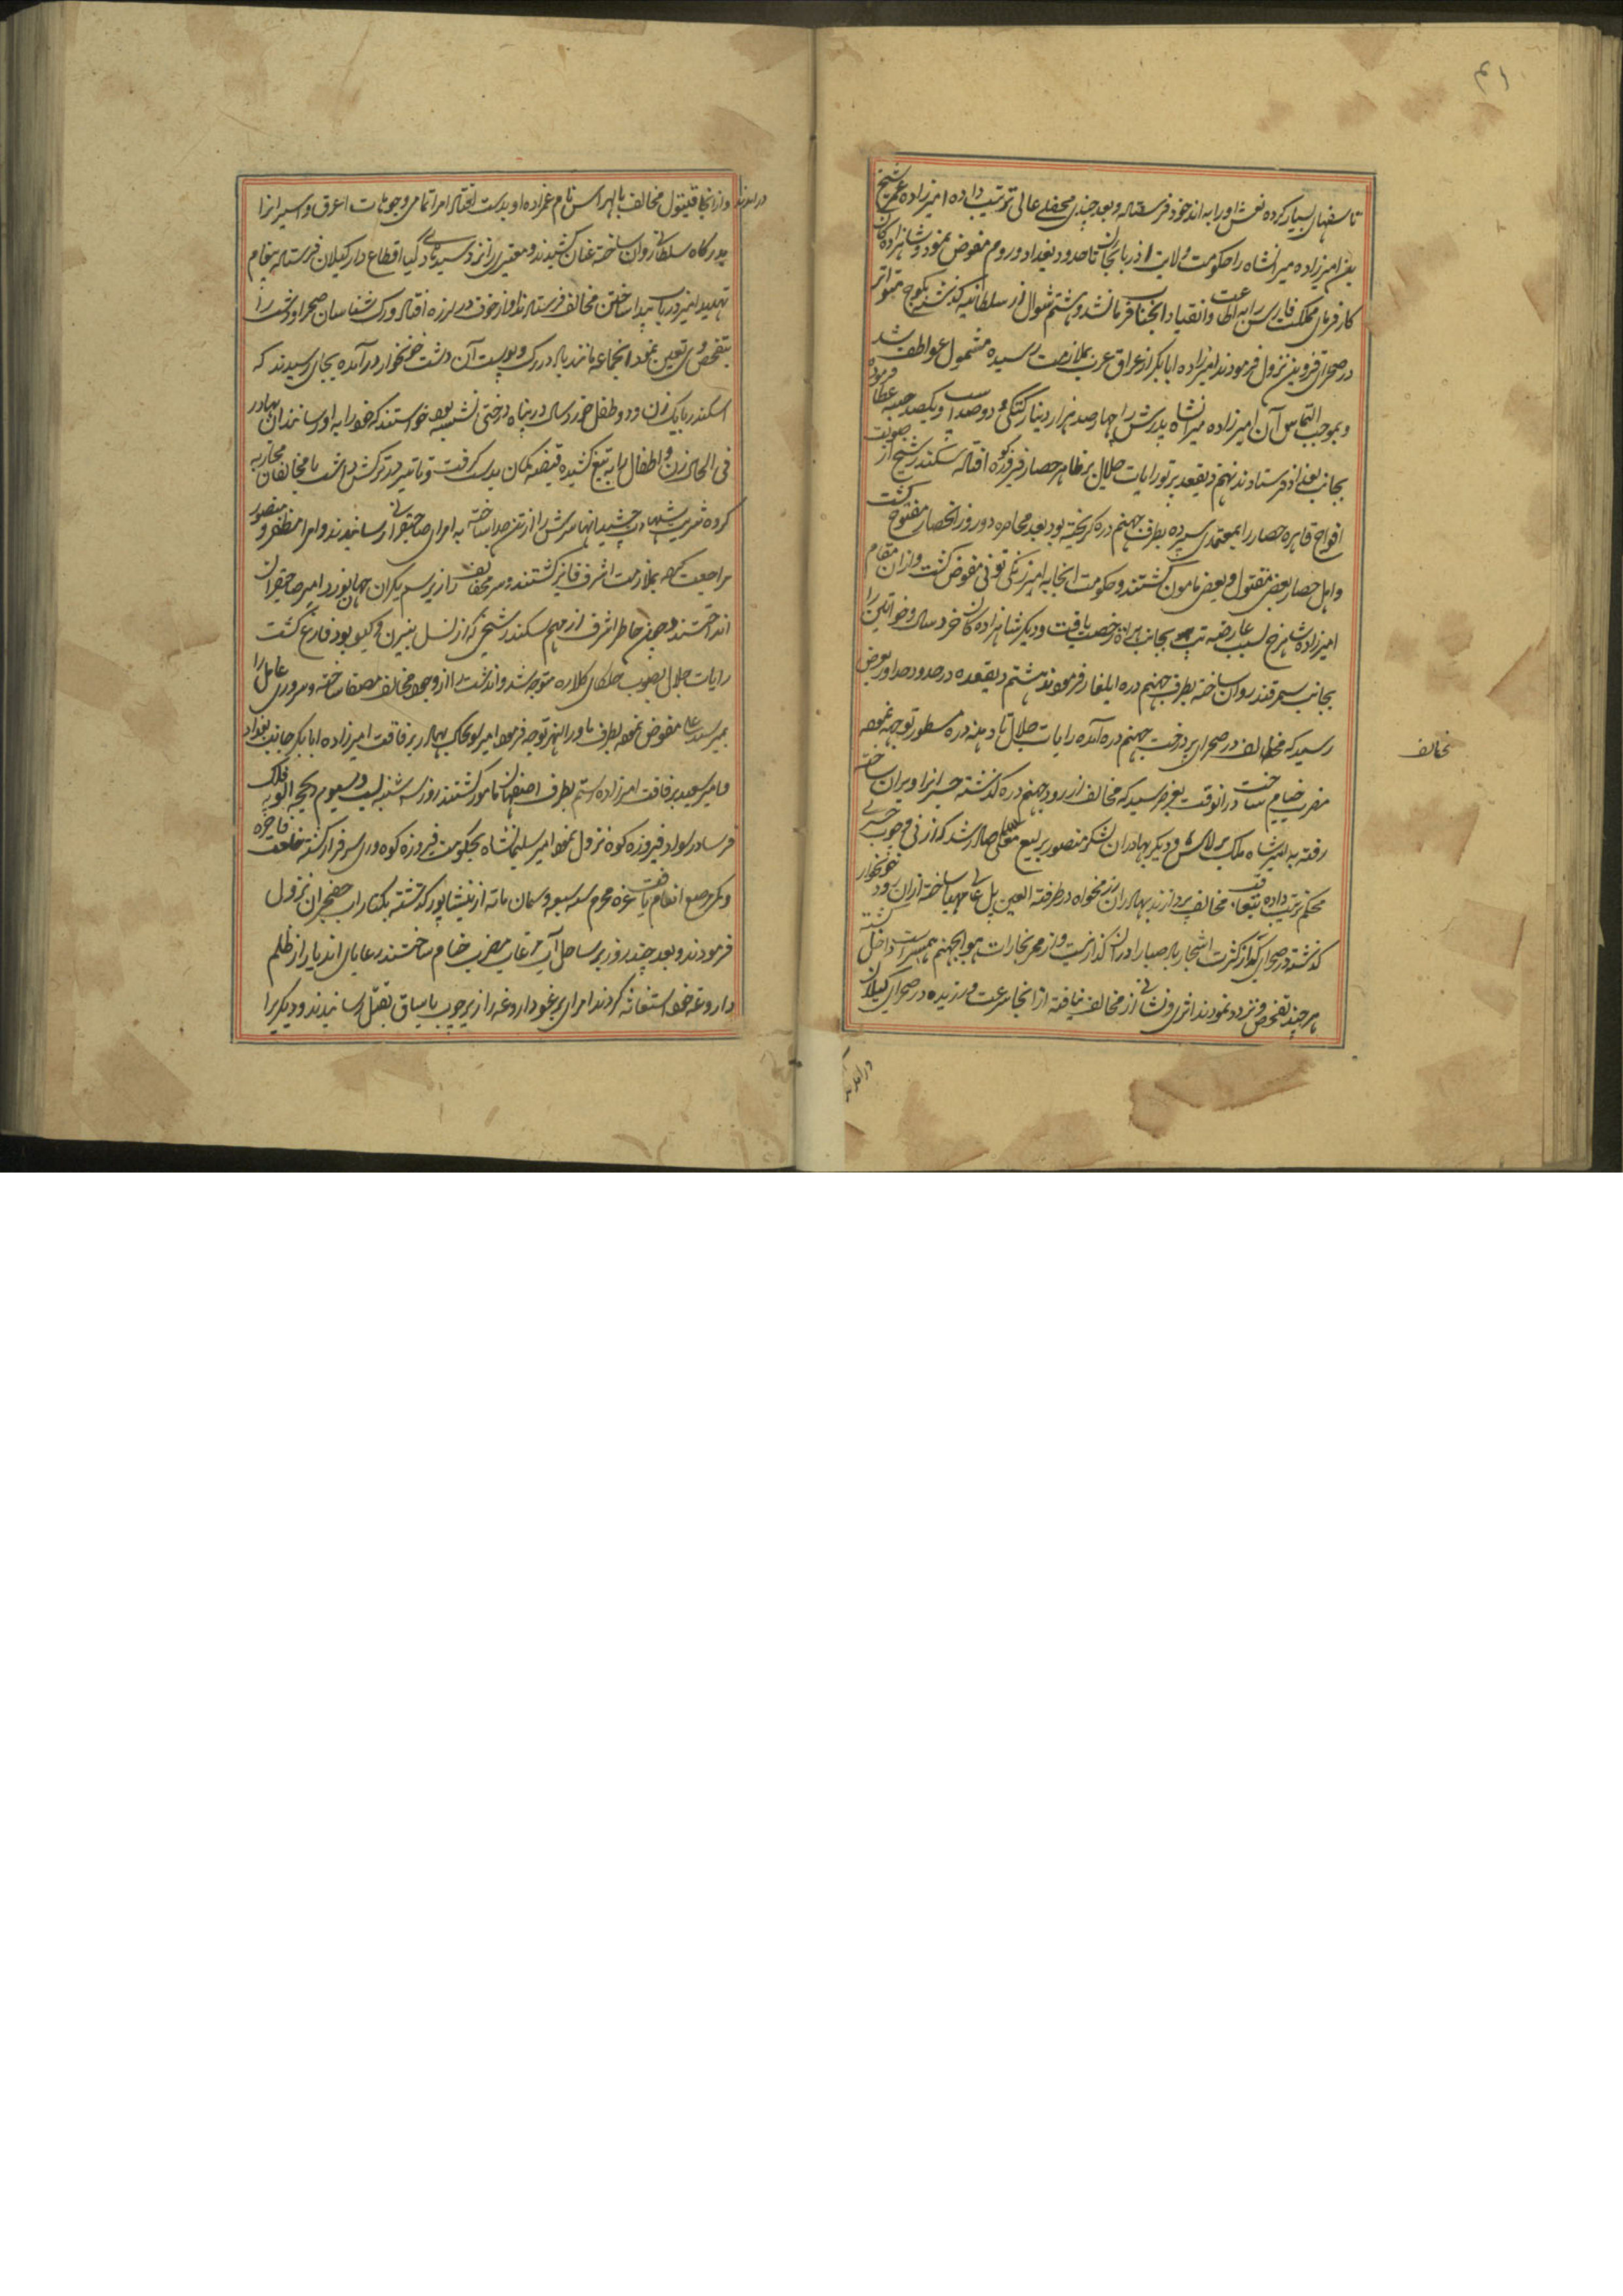 ۴۱
تا سفهان بسیار کرده نعش او را به اند خود فرستاده و بعد چندی محفلی عالی ترتیب داده امیرزاده عمر شیخ
بن امیرزاده میرانشاه را حکومت ولایت اذربایجان تا حدود بغداد و روم مفوض نمود و شاهزادگان
کارفرمای مملکت فارس را به اطاعت و انقیاد انجناب فرمانشد و هشتم شوال از سلطانیه گذشته بکوچ متواتر
در صحرای قزوین نزول فرمودند امیرزاده ابابکر از عراق عرب بملازمت رسیده مشمول عواطف شد
و بموجب التماس آن امیرزاده میرانشاه پدرش را چهار صد هزار دینار کپکی و دو صد اسب و یکصد جیبه عطا فرموده
بجانب بغداد فرستادند نهم ذیقعد پرتو رایات جلال بر ظاهر حصار فیروزکوه افتاد سکندر شیخی از صولت
افواج قاهره حصار را بمعتمدی سپرده بطرف جهنم دره گریخته بود بعد محاصره دو روز انحصار مفتوح گشت
و اهل حصار بعضی مقتول و بعضی مامون گشتند و حکومت انجا به امیر زنگی تونی مفوض گشت و ازان مقام
امیرزاده شاهرخ بسبب عارضه تب بجانب هراة رخصت یافت و دیگر شاهزادگان خرد سال و خواتین را
بجانب سمرقند روان ساخته بطرف جهنم دره ایلغار فرمودند هشتم ذیقعده در حدود جلاور بعرض
رسید که مخالف در صحرای پر درخت جهنم دره آمده رایات جلال تا دهنه دره مسطور توجه نموده
مخالف
مضرب خیام ساخت در انوقت بعرض رسید که مخالف از رود جهنم دره گذشته جسر انرا ویران ساخته
رفته به امیر شاه ملک برلاس و دیگر بهادران لشکر منصور یرلیغ معلی صادر شد که از نی و چوب جسری
محکم ترتیب داده بتعاقب مخالف پردازند بهادران رزمخواه در طرفة العین پل عالی مهیا ساخته ازان رود خونخوار
گذشته در صحرای که از کثرت اشجار باد صبا را دران گذار نیست و از ممر بخارات هوا بجهنم همسر است داخل گشته
هر چند تفحص و تردد نمودند اثری و نشانی از مخالف نیافته از انجا سرعت ورزیده در صحرای گیلان
درامدند
درامدند و از انجا قیتول مخالف با لهراسب نام عمزاده او بدست افتاد امرا تمامی وجوهات اعرق و اسیرانرا
بدرگاه سلطانی روان ساخته عنان کشیدند و معتبری را نزد سید هادی کیا اقطاع دار گیلان فرستاده پیغام
تهدید امیز در باب پیدا ساختن مخالف فرستادند او از خوف در لرزه افتاد و رک شناسان صحرا و دشت را
بتفحص وی تعین نمود انجماعه مانند باد در رگ و پوست آن دشت خونخوار درآمده بجای رسیدند که
اسکندر با یک زن و دو طفل خورد سال در پناه درختی نشسته بود خواستند که خود را به او رسانند ان بهادر
فی الحال زن و اطفال را به تیغ کشیده قبضه کمان بدست گرفت و تا تیر در ترکش داشت با مخالفان محاربه
کرده شربت شهادت چشید انها سرش را از تن جدا ساخته به امرای صاحبقرانی رسانیدند و امرا مظفر و منصور
مراجعت نموده بملازمت اشرف فایز گشتند و سر مخالف را زیر سم یکران جهان نورد امیر صاحبقران
انداختند و چون خاطر اشرف از مهم سکندر شیخی که از نسل بیژن و گیو بود فارغ گشت
رایات جلال بصوب جلگای کلاره متوجه شد و اندشت را از وجود مخالف مصفا ساخته و سروری عامل را
بمیر سید علی مفوض نموده بطرف ماوراالنهر توجه فرموده امیر سونجک بهادر برفاقت امیرزاده ابابکر جانب بغداد
و امیر سعید برفاقت امیرزاده رستم بطرف اصفهان مامور گشتند روز سه شنبه بیست و سیوم ذیحجه الویه فلک
فرسا در سواد فیروزه کوه نزول نموده امیر سلیمانشاه بحکومت فیروزه کوه و ری سرفراز گشته خلعت فاخره
و کمر مرصع انعام یافت غره محرم سنه سبعه و ثمان مائه از نیشاپور گذشته بکنار اب جغجران نزول
فرمودند و بعد چند روز بر ساحل آب مرغاب مضرب خیام ساختند رعایای اندیار از ظلم
داروغه خود استغاثه کردند امرای یرغو داروغه را زیر چوب یاساق بقتل رسانیدند و دیگر را